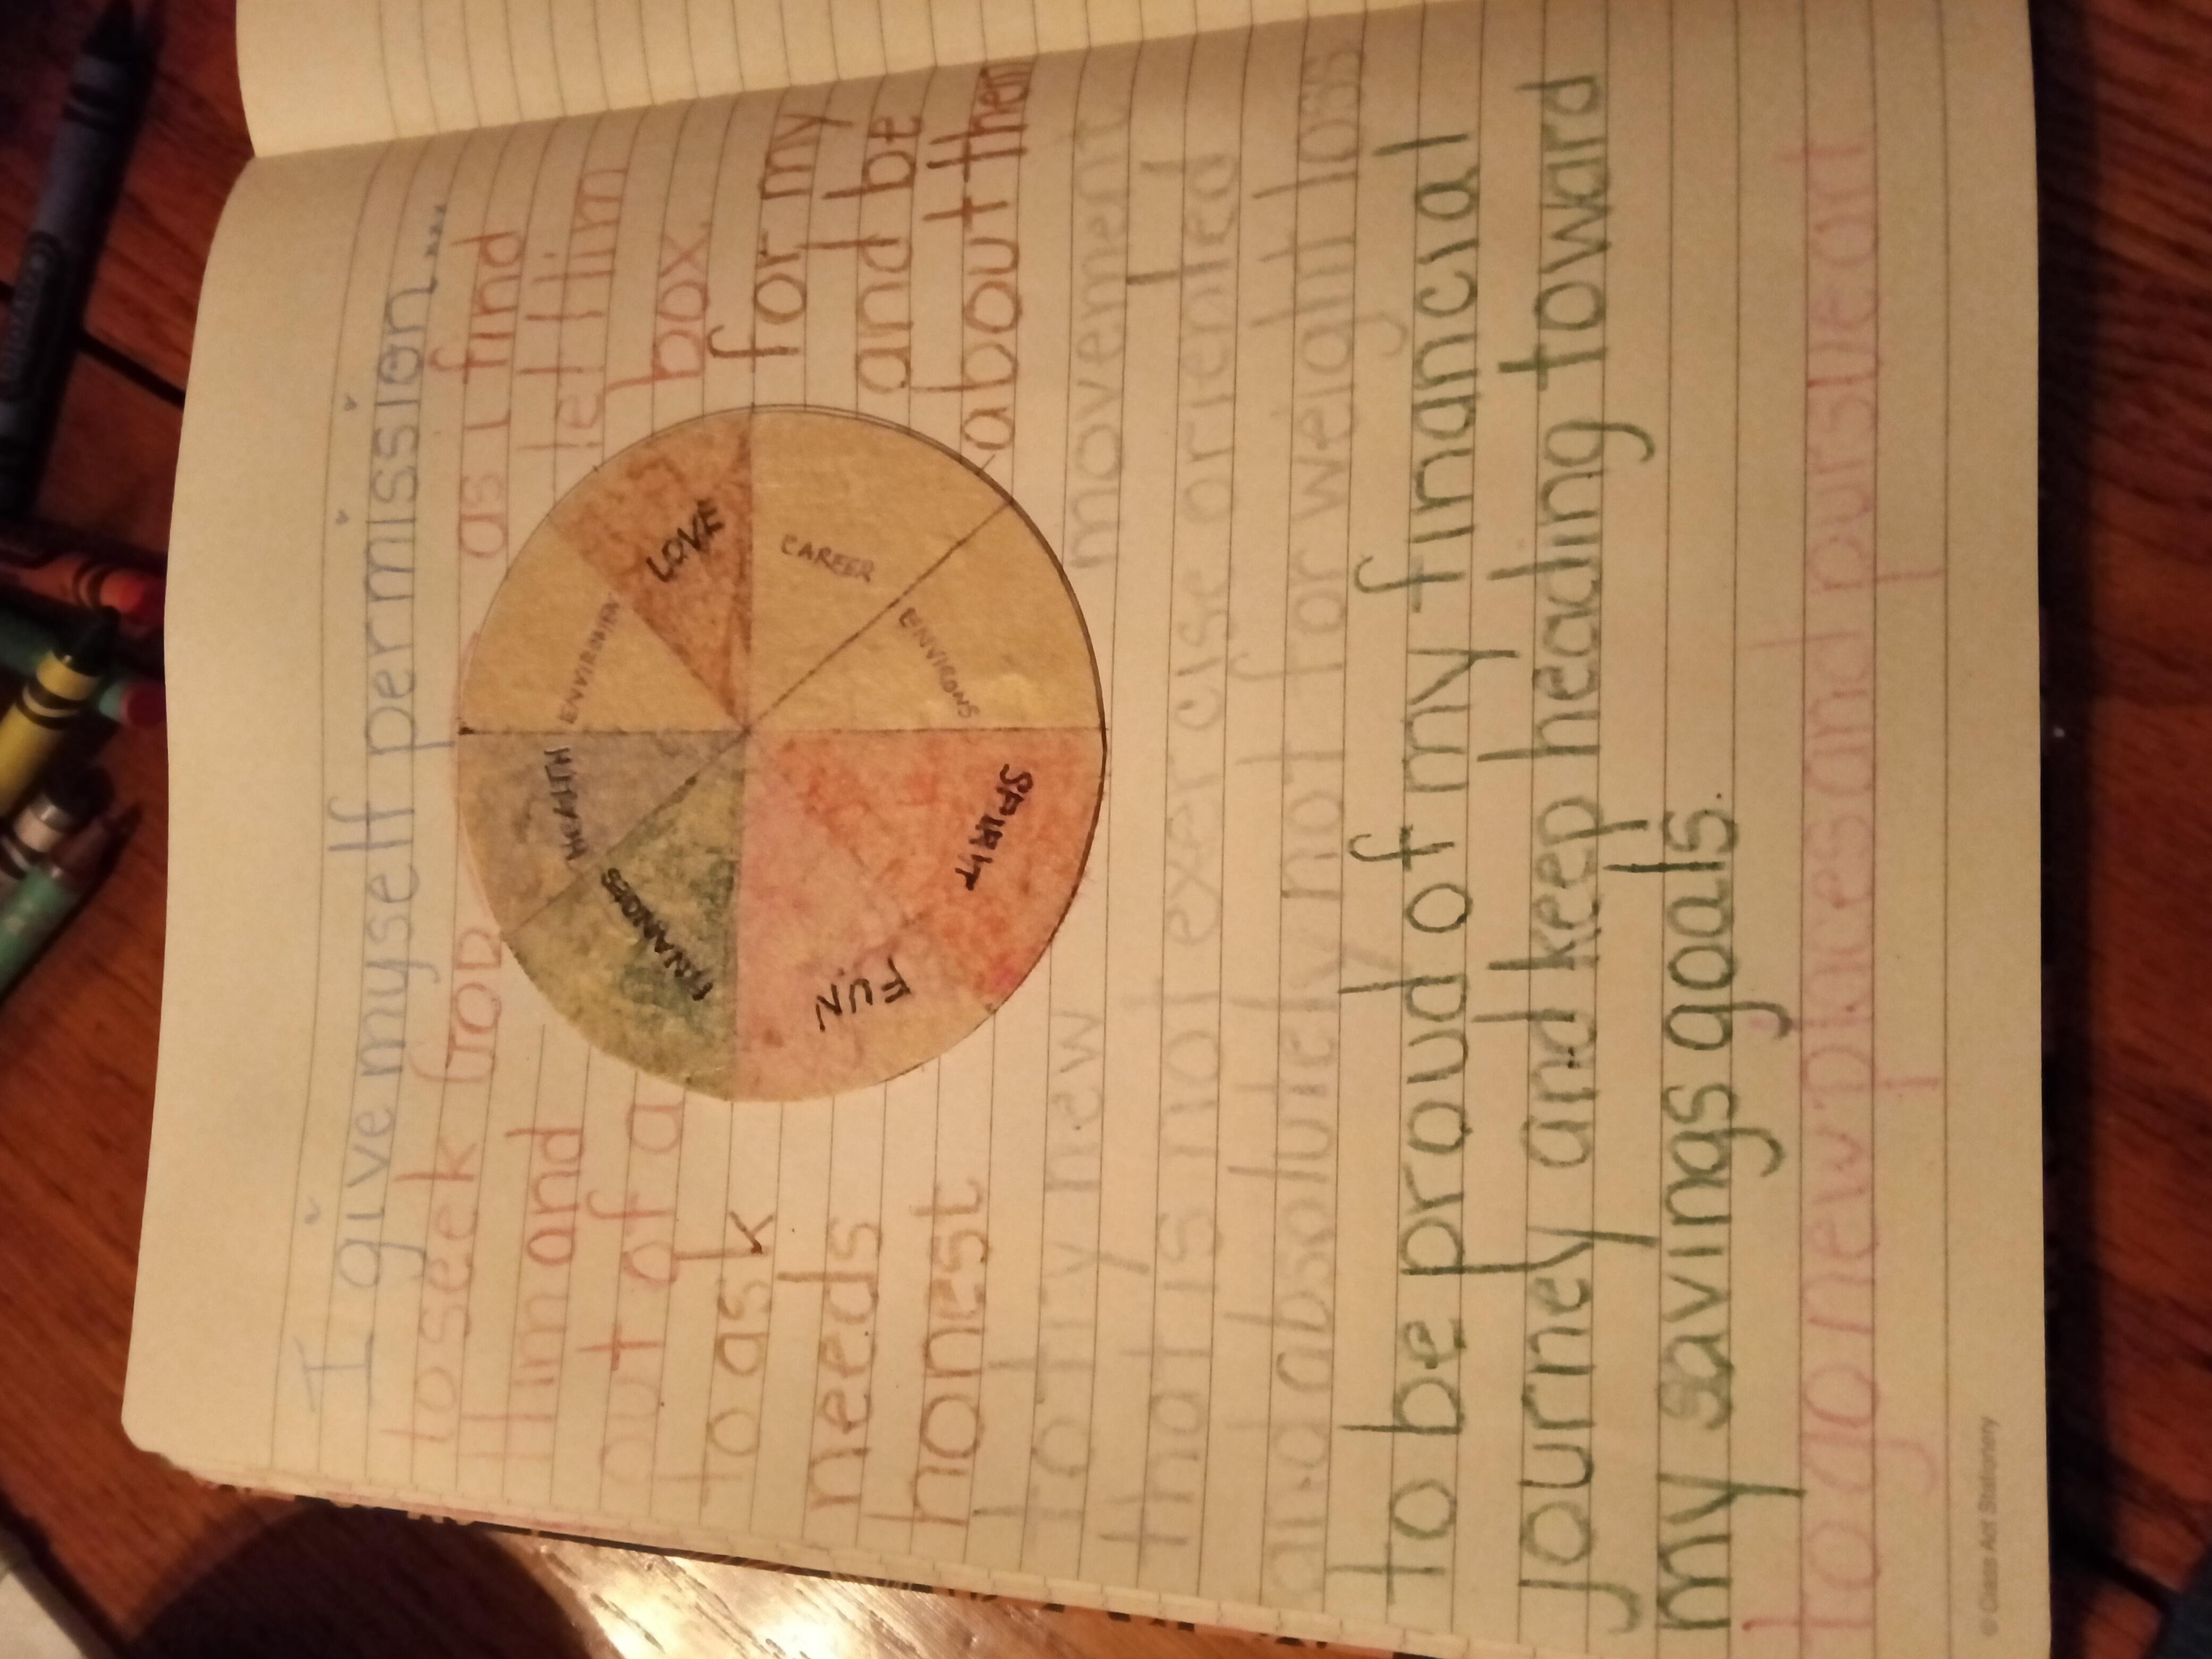 I give myself permission...
to seek GOD as I find
Him and let Him
out of a box.
to ask for my
needs and be
honest about them
LOVE
CAREER
ENVIRONS
SPIRIT
FUN
FINANCES
HEALTH
to try new movement
that is not exercise oriented
and absolutely not for weight loss
to be proud of my financial
journey and keep heading toward
my savings goals.
to go new places and pursue art
© Class Act Stationery